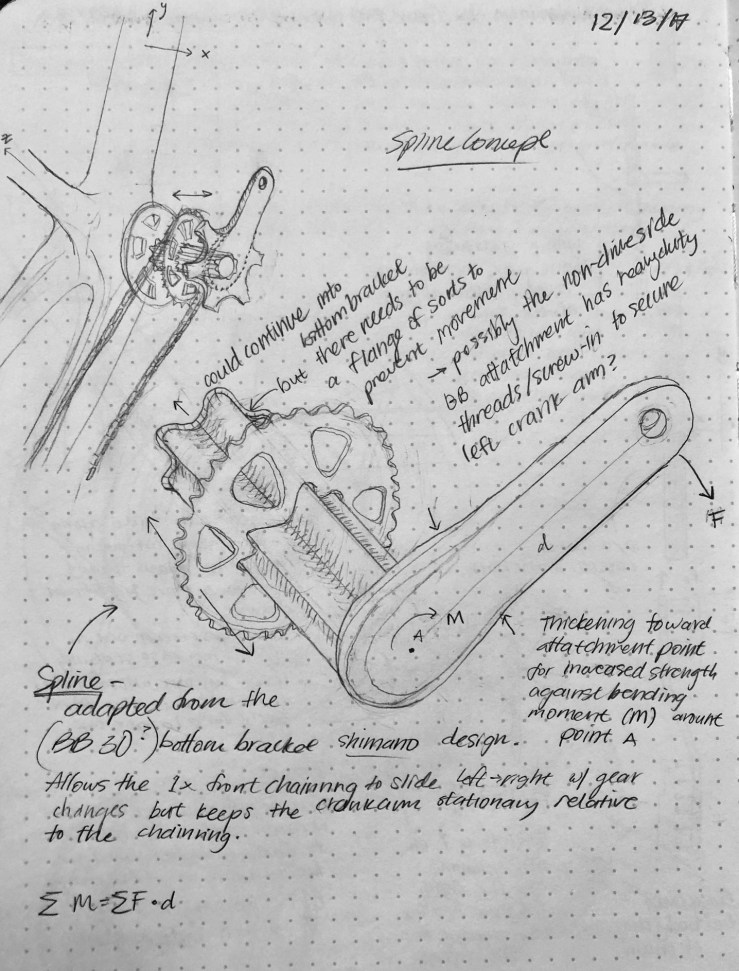 12/13/17
y
x
z
Spline Concept
could continue into
bottom bracket
but there needs to be
a flange of sorts to
prevent movement
→ possibly the non-drive side
BB attatchment has heavy duty
threads/screw-in to secure
left crank arm?
F
d
M
A
Thickening toward
attatchment point
for increased strength
against bending
moment (M) around
point A
Spline –
adapted from the
(BB 30?) bottom bracket shimano design.
Allows the 1x front chainring to slide left→right w/ gear
changes but keeps the crankarm stationary relative
to the chainring.
Σ M=ΣF•d